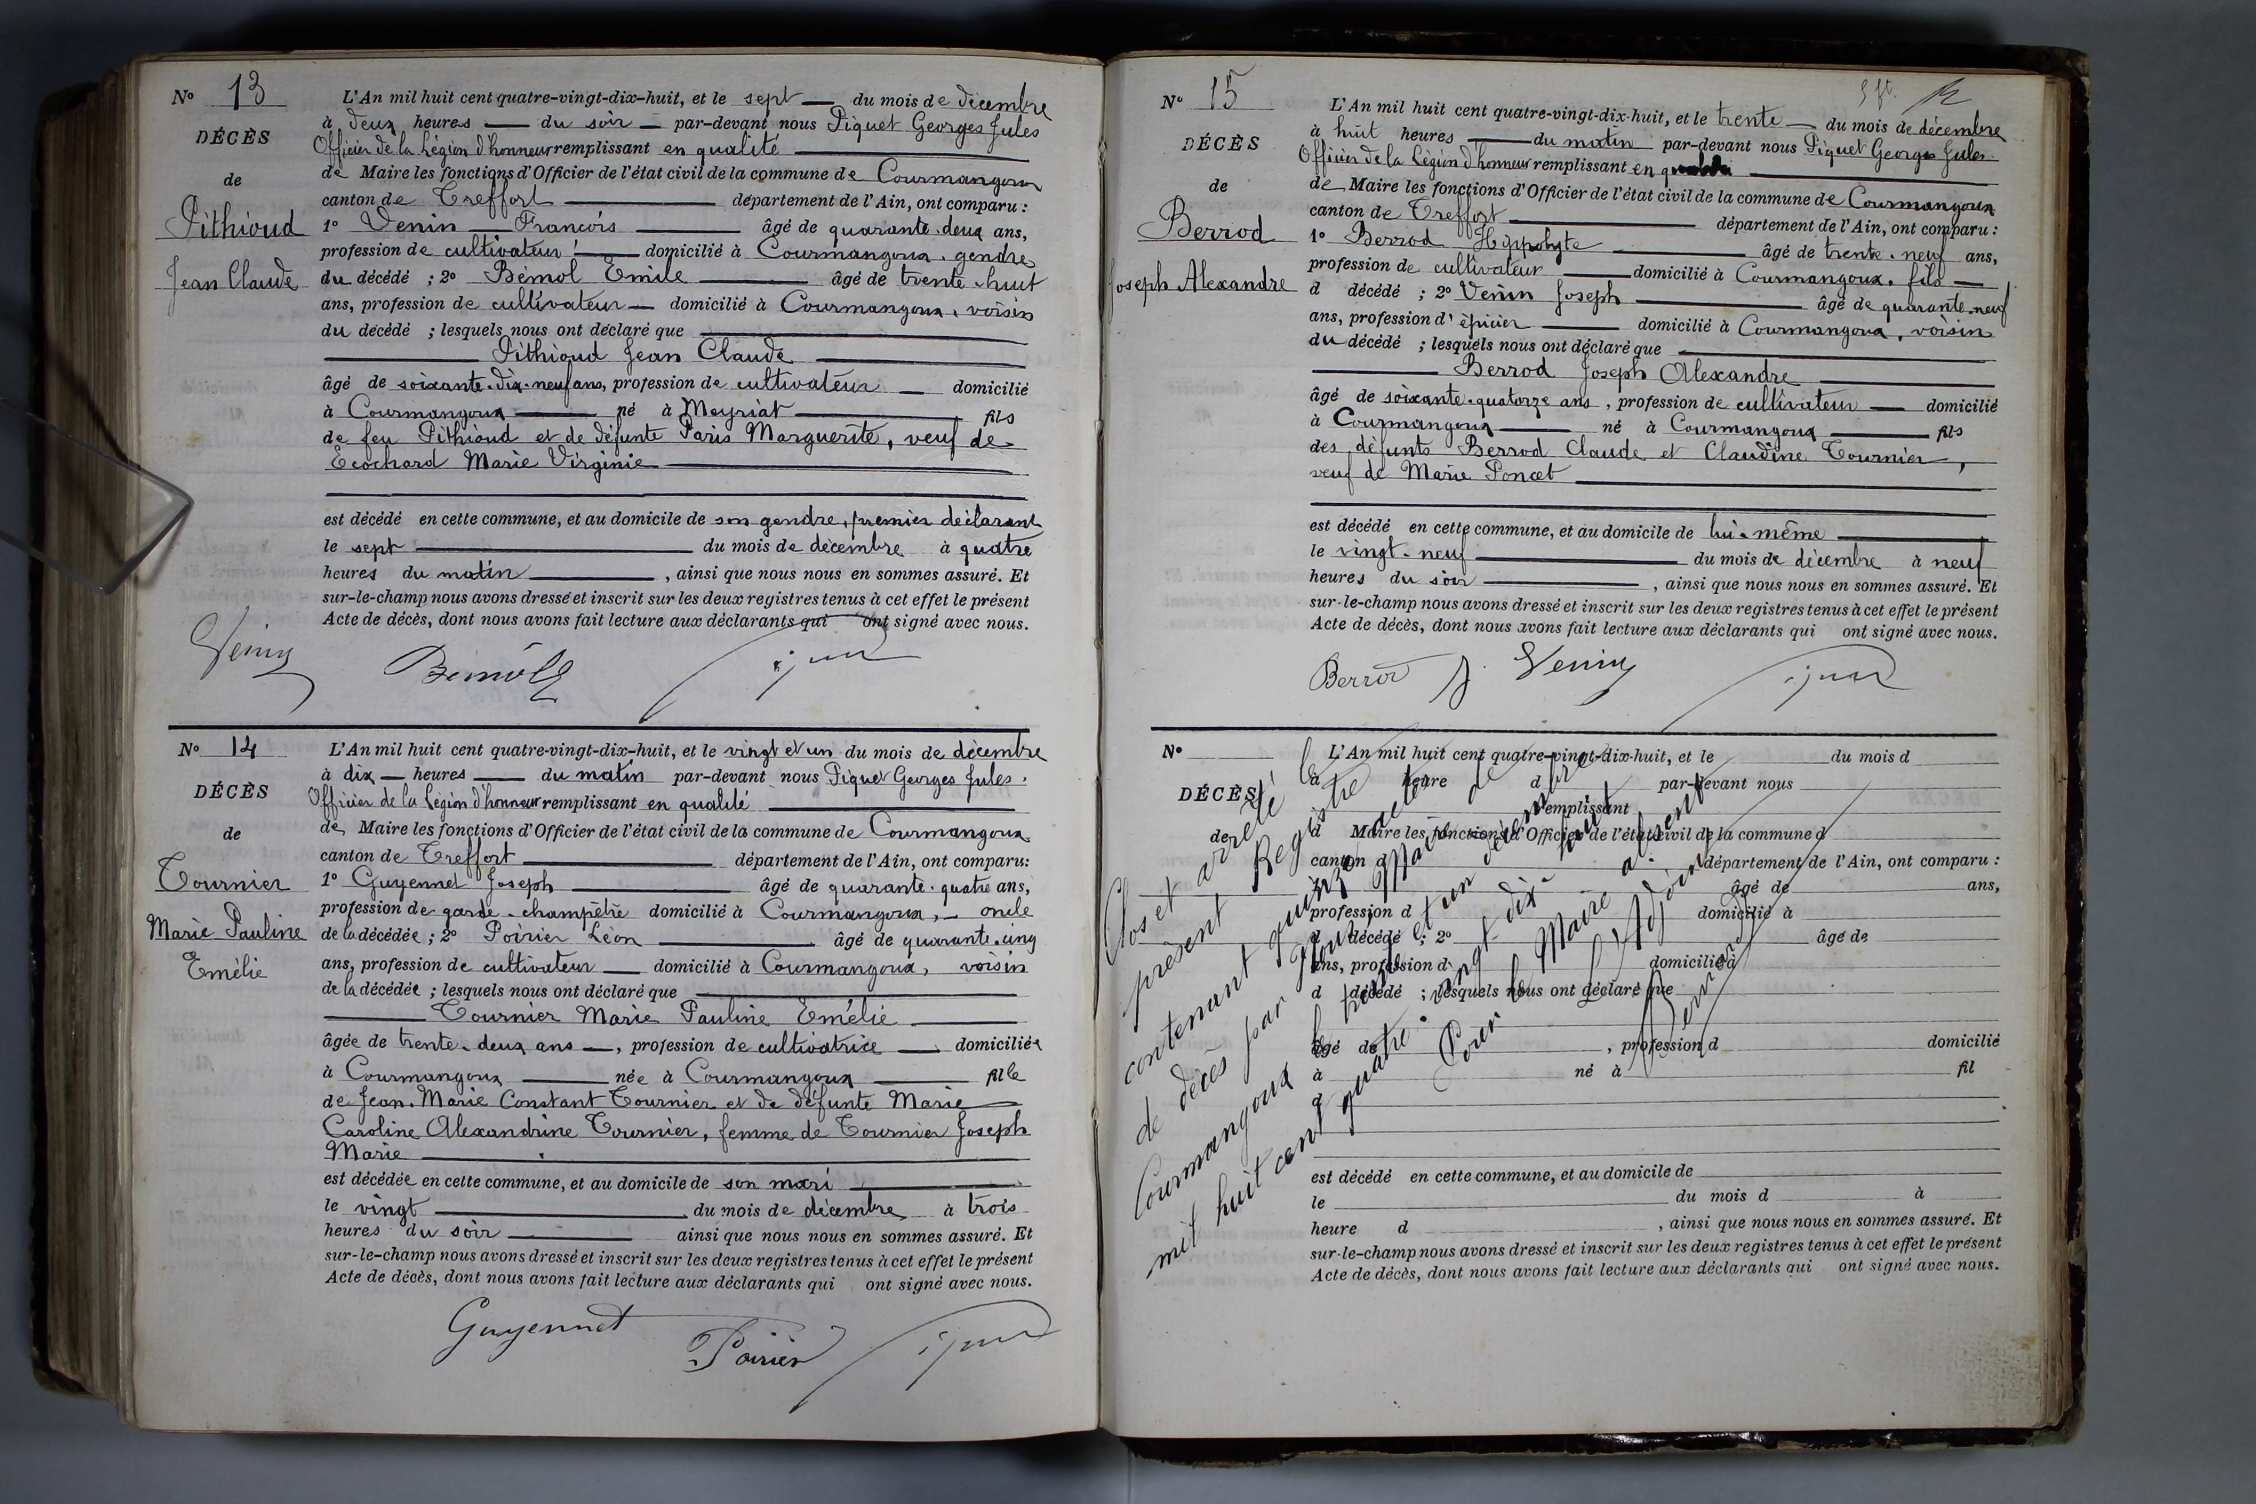 N° 13
DÉCÈS
de
Pithioud
Jean Claude
L'An mil huit cent quatre-vingt-dix-huit, et le sept du mois de décembre
à deux heures du soir par-devant nous Piquet Georges Jules
Officier de la Légion d'honneur remplissant en qualité
de Maire les fonctions d'Officier de l'état civil de la commune de Courmangoux
canton de Treffort département de l'Ain, ont comparu :
1° Venin François âgé de quarante-deux ans,
profession de cultivateur domicilié à Courmangoux, gendre
du décédé ; 2° Bémol Émile âgé de trente-huit
ans, profession de cultivateur domicilié à Courmangoux, voisin
du décédé ; lesquels nous ont déclaré que
Pithioud Jean Claude
âgé de soixante-dix-neuf ans, profession de cultivateur domicilié
à Courmangoux né à Meyriat fils
de feu Pithioud et de défunte Paris Marguerite, veuf de
Ecochard Marie Virginie
est décédé en cette commune, et au domicile de son gendre, premier déclarant
le sept du mois de décembre à quatre
heures du matin, ainsi que nous nous en sommes assuré. Et
sur-le-champ nous avons dressé et inscrit sur les deux registres tenus à cet effet le présent
Acte de décès, dont nous avons fait lecture aux déclarants qui ont signé avec nous.
Venin Bémol
N° 14
DÉCÈS
de
Tournier
Marie Pauline
Emélie
L'An mil huit cent quatre-vingt-dix-huit, et le vingt et un du mois de décembre
à dix heures du matin par-devant nous Piquet Georges Jules.
Officier de la Légion d'honneur remplissant en qualité
de Maire les fonctions d'Officier de l'état civil de la commune de Courmangoux
canton de Treffort département de l'Ain, ont comparu:
1° Guyennet Joseph âgé de quarante-quatre ans,
profession de garde-champêtre domicilié à Courmangoux, oncle
de la décédée ; 2° Poirier Léon âgé de quarante-cinq
ans, profession de cultivateur domicilié à Courmangoux, voisin
de la décédée ; lesquels nous ont déclaré que
Tournier Marie Pauline Emélie
âgée de trente-deux ans, profession de cultivatrice domiciliée
à Courmangoux née à Courmangoux fille
de Jean-Marie Constant Tournier et de défunte Marie
Caroline Alexandrine Tournier, femme de Tournier Joseph
Marie
est décédée en cette commune, et au domicile de son mari
le vingt du mois de décembre à trois
heures du soir ainsi que nous nous en sommes assuré. Et
sur-le-champ nous avons dressé et inscrit sur les deux registres tenus à cet effet le présent
Acte de décès, dont nous avons fait lecture aux déclarants qui ont signé avec nous.
Guyennet Poirier
N° 15
DÉCÈS
de
Berrod
Joseph Alexandre
L'An mil huit cent quatre-vingt-dix-huit, et le trente du mois de décembre
à huit heures du matin par-devant nous Piquet Georges Jules
Officier de la Légion d'honneur remplissant en qualité
de Maire les fonctions d'Officier de l'état civil de la commune de Courmangoux
canton de Treffort département de l'Ain, ont comparu :
1° Berrod Hippolyte âgé de trente-neuf ans,
profession de cultivateur domicilié à Courmangoux, fils
d décédé ; 2° Venin Joseph âgé de quarante-neuf
ans, profession d'épicier domicilié à Courmangoux, voisin
du décédé ; lesquels nous ont déclaré que
Berrod Joseph Alexandre
âgé de soixante-quatorze ans, profession de cultivateur domicilié
à Courmangoux né à Courmangoux fils
des défunts Berrod Claude et Claudine Tournier,
veuf de Marie Poncet
est décédé en cette commune, et au domicile de lui-même
le vingt-neuf du mois de décembre à neuf
heures du soir, ainsi que nous nous en sommes assuré. Et
sur-le-champ nous avons dressé et inscrit sur les deux registres tenus à cet effet le présent
Acte de décès, dont nous avons fait lecture aux déclarants qui ont signé avec nous.
Berrod J. Venin
N°
DÉCÈS
de
L'An mil huit cent quatre-vingt-dix-huit, et le du mois d
à heure d par-devant nous
remplissant
d Maire les fonctions d'Officier de l'état civil de la commune d
canton d département de l'Ain, ont comparu :
âgé de ans,
profession d domicilié à
d décédé ; 2° âgé de
ans, profession d domicilié à
d décédé ; lesquels nous ont déclaré que
âgé de , profession d domicilié
à né à fil
d
est décédé en cette commune, et au domicile de
le du mois d à
heure d , ainsi que nous nous en sommes assuré. Et
sur-le-champ nous avons dressé et inscrit sur les deux registres tenus à cet effet le présent
Acte de décès, dont nous avons fait lecture aux déclarants qui ont signé avec nous.
Clos et arrêté le
présent Registre
contenant quinze actes de
décès par Nous, Maire de
Courmangoux le trente et un décembre
mil huit cent quatre-vingt-dix-huit
Pour le Maire absent
L'Adjoint